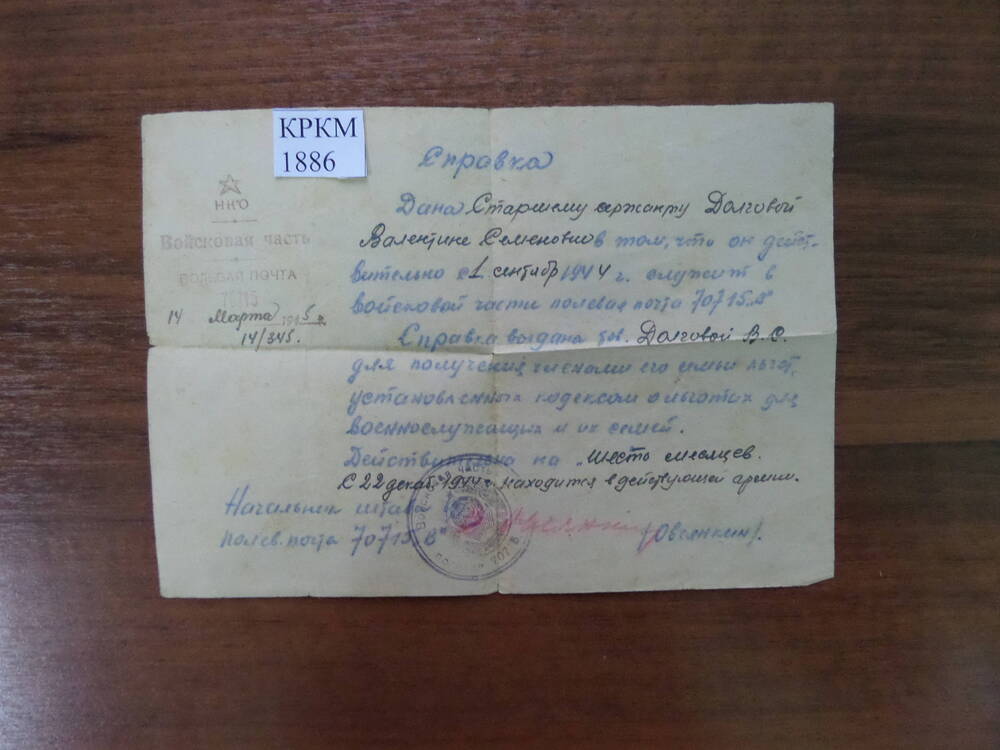 КРКМ
1886
НКО
Войсковая часть
ПОЛЕВАЯ ПОЧТА
70715
14 Марта 1945 г.
14/345.
Справка
Дана Старшему сержанту Долговой
Валентине Семеновне в том, что он дейст-
вительно с 1 сентябр 1944 г. служит в
войсковой части полевая почта 70715.В"
Справка выдана тов. Долговой В.С.
для получения членами его семьи льгот,
установленных кодексом о льготах для
военнослужащих и их семей.
Действительна на "шесть месяцев.
С 22 декаб. 1944 г. находится в действующей армии.
Начальник штаба
полев. почта 70715.В"
(Овсянкин).
ВОЙСКОВАЯ ЧАСТЬ